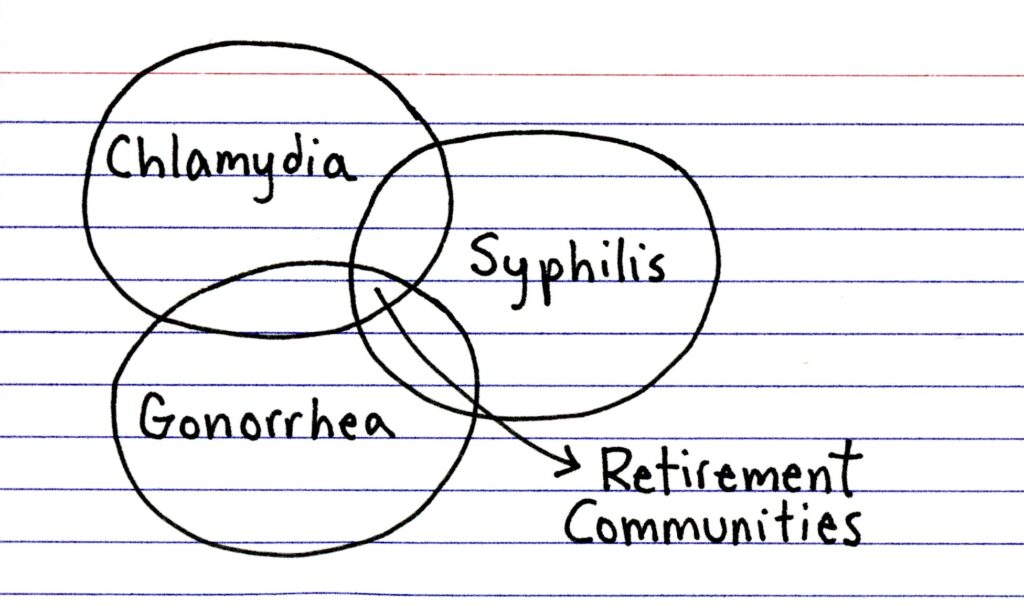 Chlamydia
Syphilis
Gonorrhea
Retirement
Communities